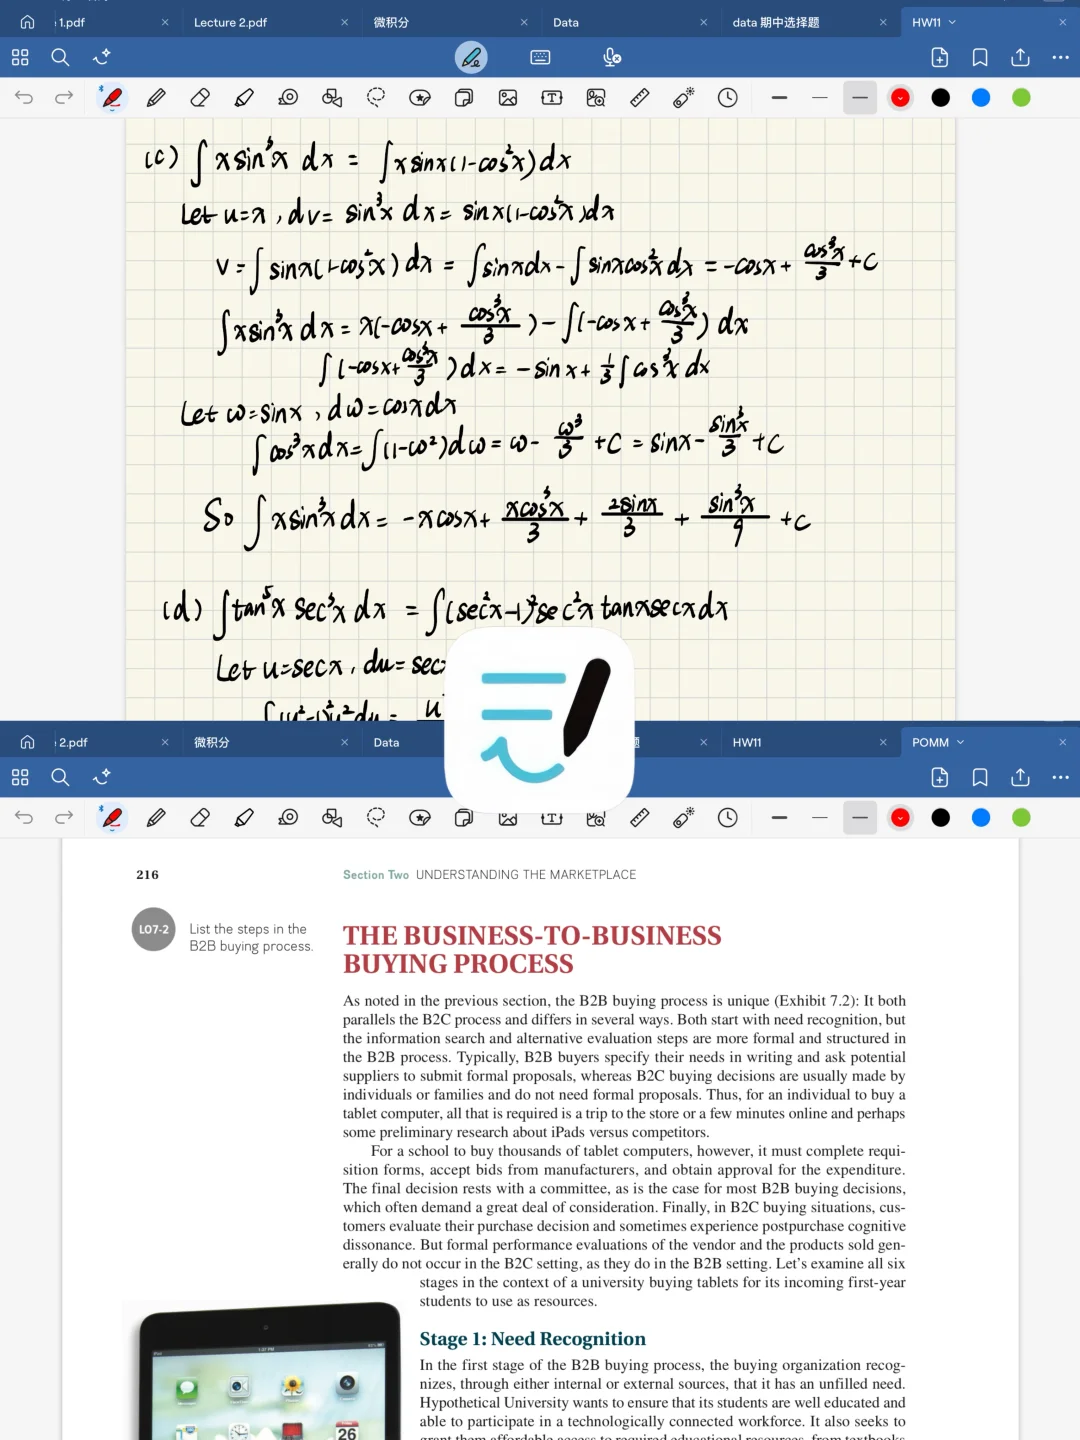 1.pdf Lecture 2.pdf 微积分 Data data 期中选择题 HW11
(c) ∫ x sin³x dx = ∫ x sinx (1-cos²x) dx
Let u=x, dv= sin³x dx = sinx(1-cos²x)dx
v = ∫ sinx(1-cos²x) dx = ∫ sinx dx - ∫ sinx cos²x dx = -cosx + cos³x/3 + C
∫ x sin³x dx = x(-cosx + cos³x/3) - ∫(-cosx + cos³x/3) dx
∫ (-cosx + cos³x/3) dx = -sinx + 1/3 ∫ cos³x dx
Let ω=sinx, dω=cosxdx
∫ cos³x dx = ∫(1-ω²)dω = ω - ω³/3 + C = sinx - sin³x/3 + C
So ∫ x sin³x dx = -xcosx + xcos³x/3 + 2sinx/3 + sin³x/9 + C
(d) ∫ tan⁵x sec³x dx = ∫(sec²x-1)² sec²x tanxsecxdx
Let u=secx, du=
∫(u²-1)²u²du =
2.pdf 微积分 Data 题 HW11 POMM
216 Section Two UNDERSTANDING THE MARKETPLACE
LO7-2 List the steps in the
B2B buying process.
THE BUSINESS-TO-BUSINESS
BUYING PROCESS
As noted in the previous section, the B2B buying process is unique (Exhibit 7.2): It both
parallels the B2C process and differs in several ways. Both start with need recognition, but
the information search and alternative evaluation steps are more formal and structured in
the B2B process. Typically, B2B buyers specify their needs in writing and ask potential
suppliers to submit formal proposals, whereas B2C buying decisions are usually made by
individuals or families and do not need formal proposals. Thus, for an individual to buy a
tablet computer, all that is required is a trip to the store or a few minutes online and perhaps
some preliminary research about iPads versus competitors.
For a school to buy thousands of tablet computers, however, it must complete requi-
sition forms, accept bids from manufacturers, and obtain approval for the expenditure.
The final decision rests with a committee, as is the case for most B2B buying decisions,
which often demand a great deal of consideration. Finally, in B2C buying situations, cus-
tomers evaluate their purchase decision and sometimes experience postpurchase cognitive
dissonance. But formal performance evaluations of the vendor and the products sold gen-
erally do not occur in the B2C setting, as they do in the B2B setting. Let's examine all six
stages in the context of a university buying tablets for its incoming first-year
students to use as resources.
Stage 1: Need Recognition
In the first stage of the B2B buying process, the buying organization recog-
nizes, through either internal or external sources, that it has an unfilled need.
Hypothetical University wants to ensure that its students are well educated and
able to participate in a technologically connected workforce. It also seeks to
grant them affordable access to required educational resources, from textbooks
26